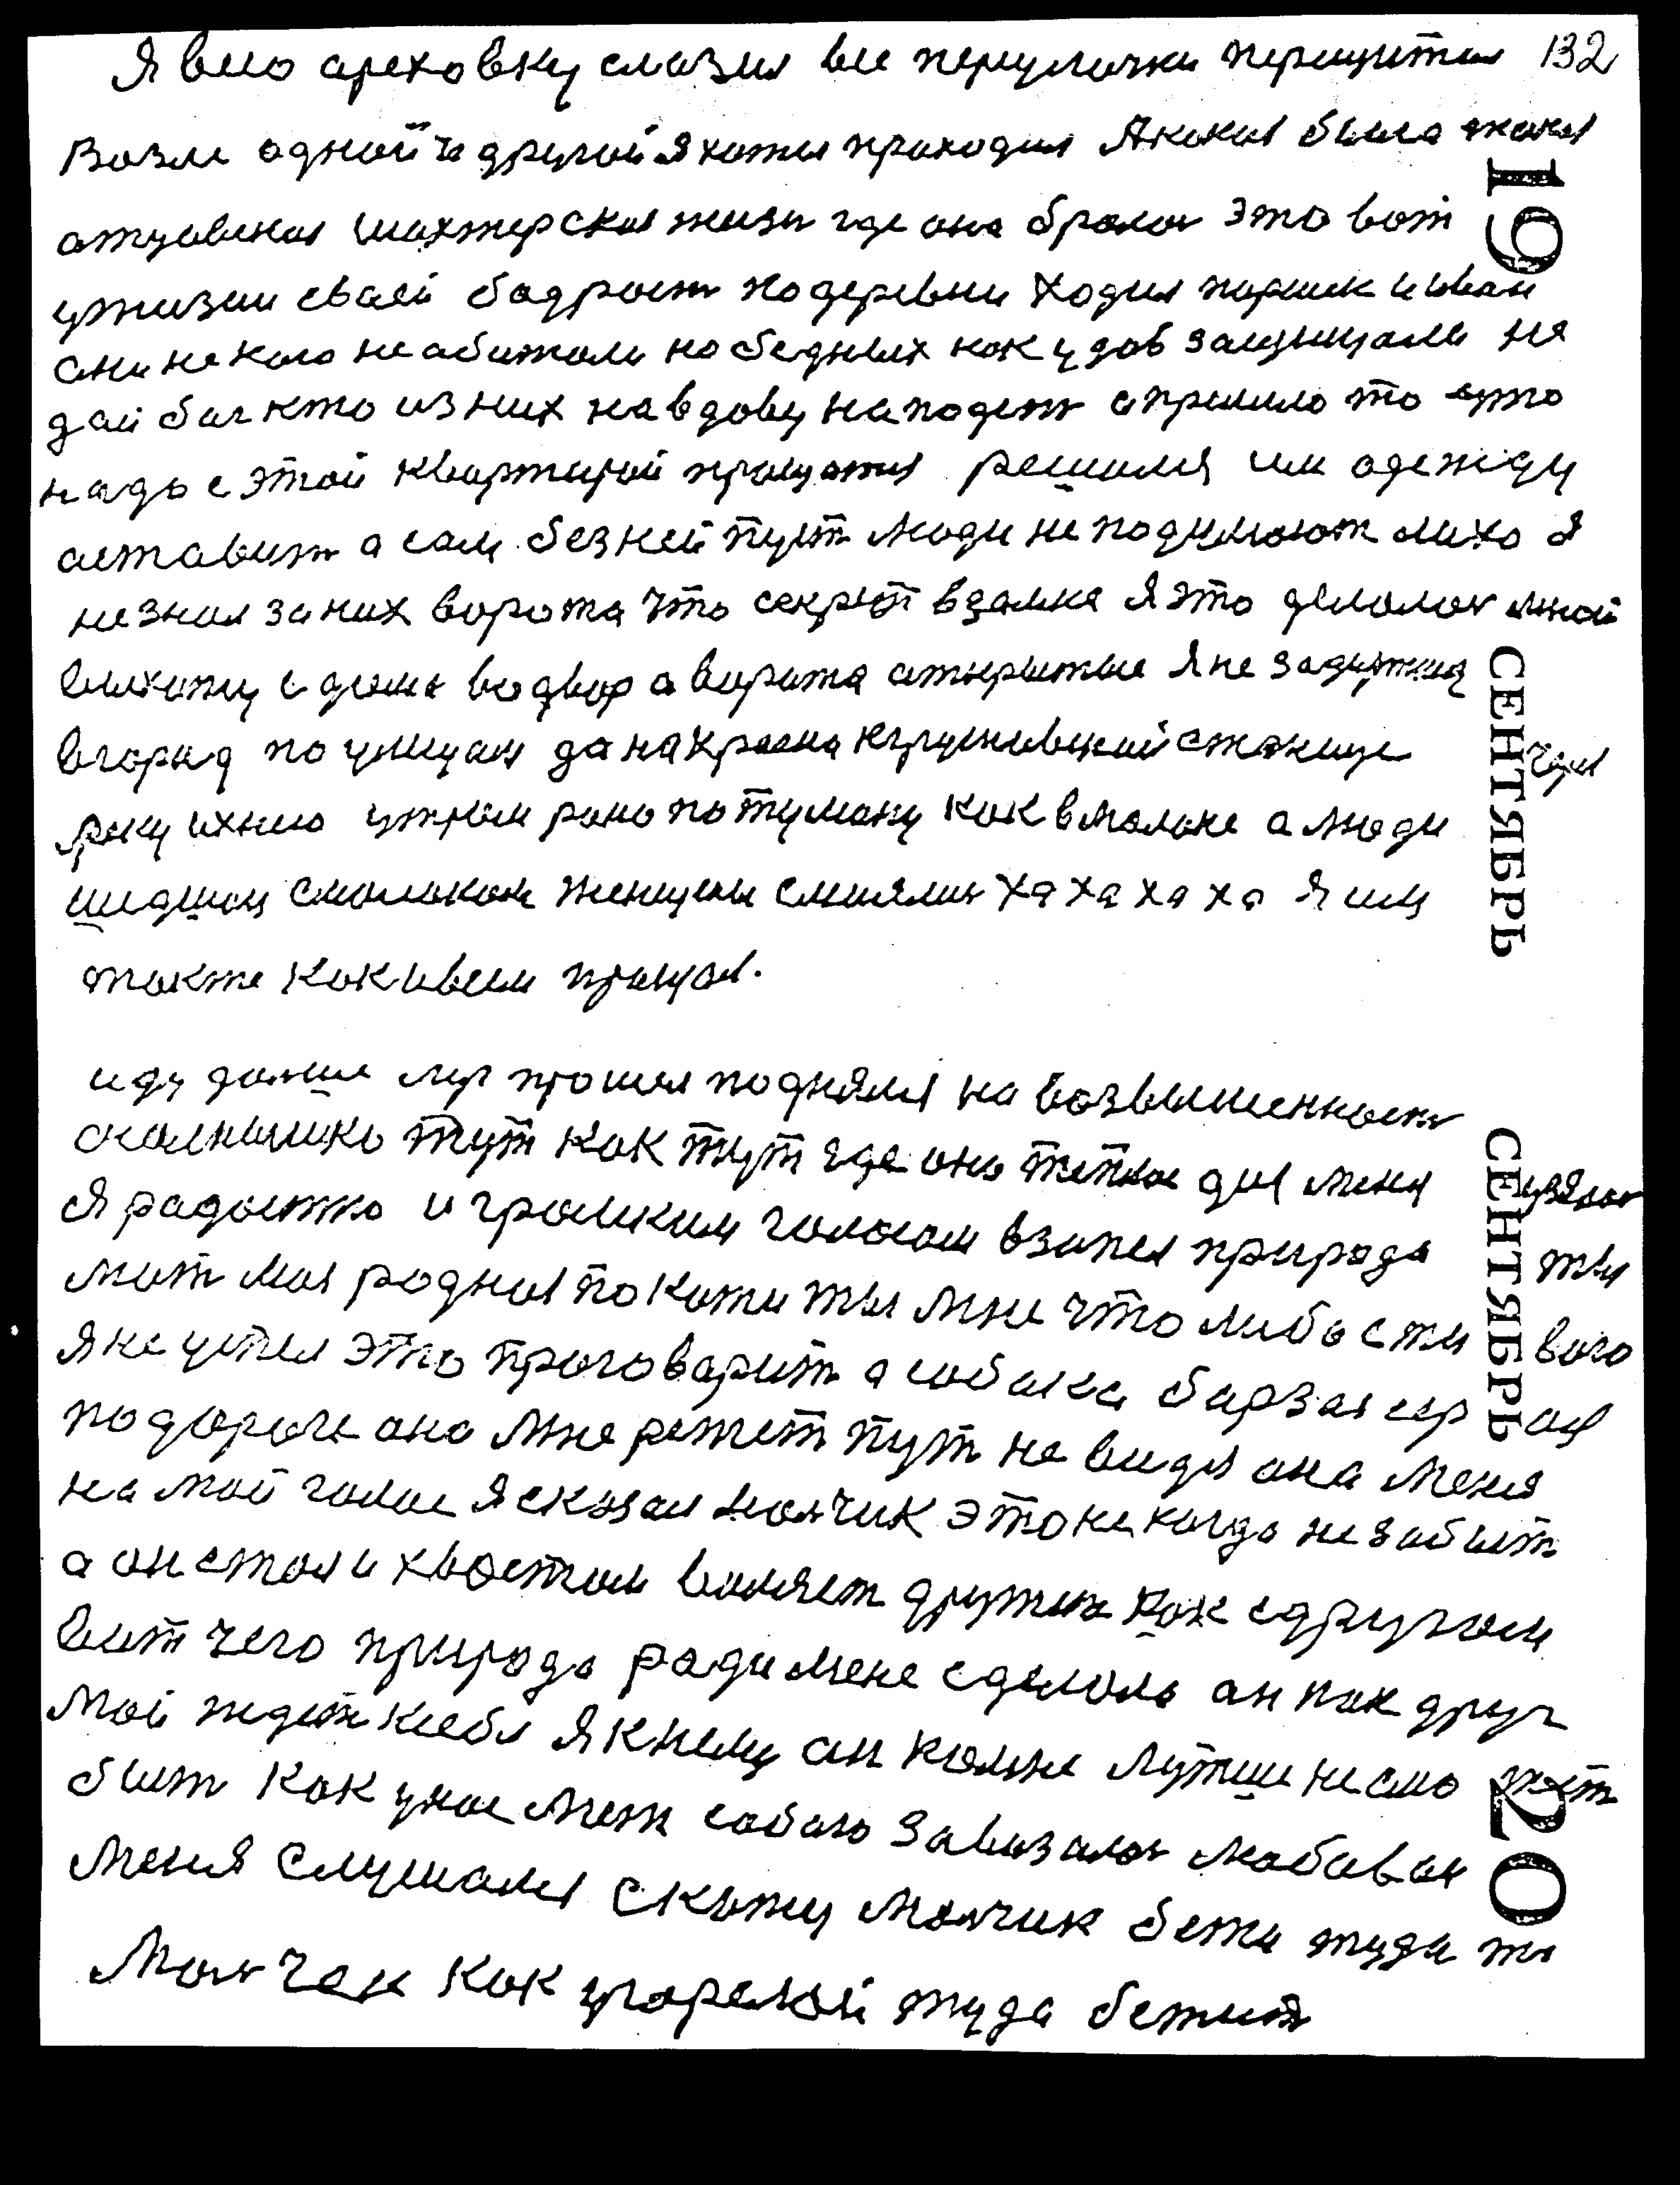 132
Я всю ореховку слазил все переулочки перещитал
Возле одной и другой я хотел проходил Якокая была такая
отцовская шахтерская жизн где она бралас это вот
ужизни своей бодрост по деревни ходил паршек и иван
они некого необижали но бедных как удов защищали не
дай бог кто из них на вдову нападет а пришло то что
надо с этой квартирой прощатся решился им одежду
аставит а сам без ней пут люди не подумают лихо я
не знал за них ворота что секрет взамке я это делалос мной
выхожу с дома во двор а ворота аткрытые я не задержид
вгород по улицам да на красно кгрушевской станице чериз
реку ихнию утром рано по туману как вмолоке а люди
шидшиы смолоком женщены смиялис ха ха ха ха я им
также как ивсем прощал.
иду дальше луг прошел поднялся на возвышенност
солнышко тут как тут где оно теплое для меня узялос
я радостно и громким голосом взапел природа ты
мат моя родная покажи ты мне что либо с жи вого
я не успел это проговарит а собака барзая сер ая
подороге она мне режет пут не видя она меня
на мой голос я сказал малчик это некогда незабыт
а он стоял и хвостом виляет дружит как сдругом
вит чего природа ради мене сделала ан как друг
мой ждет ксебе я кнему ан комне лутше не смо жет
быт как унас меж собою завязалос любов он
меня слушался скажу малчик бежи туда то
Малчек как угорелой туда бежит
19
СЕНТЯБРЬ
СЕНТЯБРЬ
20